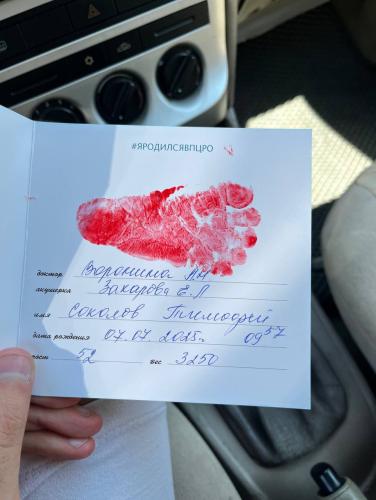 #ЯРОДИЛСЯВПЦРО
доктор Воронина А.Н
акушерка Захарова Е.Л
имя Соколов Тимофей
дата рождения 07.07.2025г. 09 57
рост 52 вес 3250